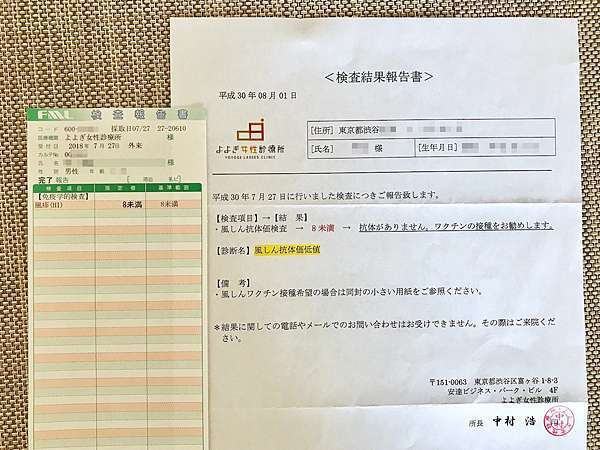 FML 検査報告書
コード 600- 採取日07/27 27-20610
医療機関 よよぎ女性診療所 様
受付日 2018年 7月27日 外来
カルテNo 0G
氏名 様
性別 男性 年齢
完了報告
検査項目 測定値 基準範囲
【免疫学的検査】
風疹(HI) 8未満 8未満
<検査結果報告書>
平成30年08月01日
よよぎ女性診療所
YOYOGI LADIES CLINIC
[住所] 東京都渋谷
[氏名] 様 [生年月日]
平成30年7月27日に行いました検査につきご報告致します。
【検査項目】→【結 果】
・風しん抗体価検査 → 8未満 → 抗体がありません。ワクチンの接種をお勧めします。
【診断名】風しん抗体価低値
【備 考】
・風しんワクチン接種希望の場合は同封の小さい用紙をご参照ください。
＊結果に関しての電話やメールでのお問い合わせはお受けできません。その際はご来院くだ
さい。
〒151-0063 東京都渋谷区富ヶ谷1-8-3
安達ビジネス・パーク・ビル 4F
よよぎ女性診療所
所長 中村 浩